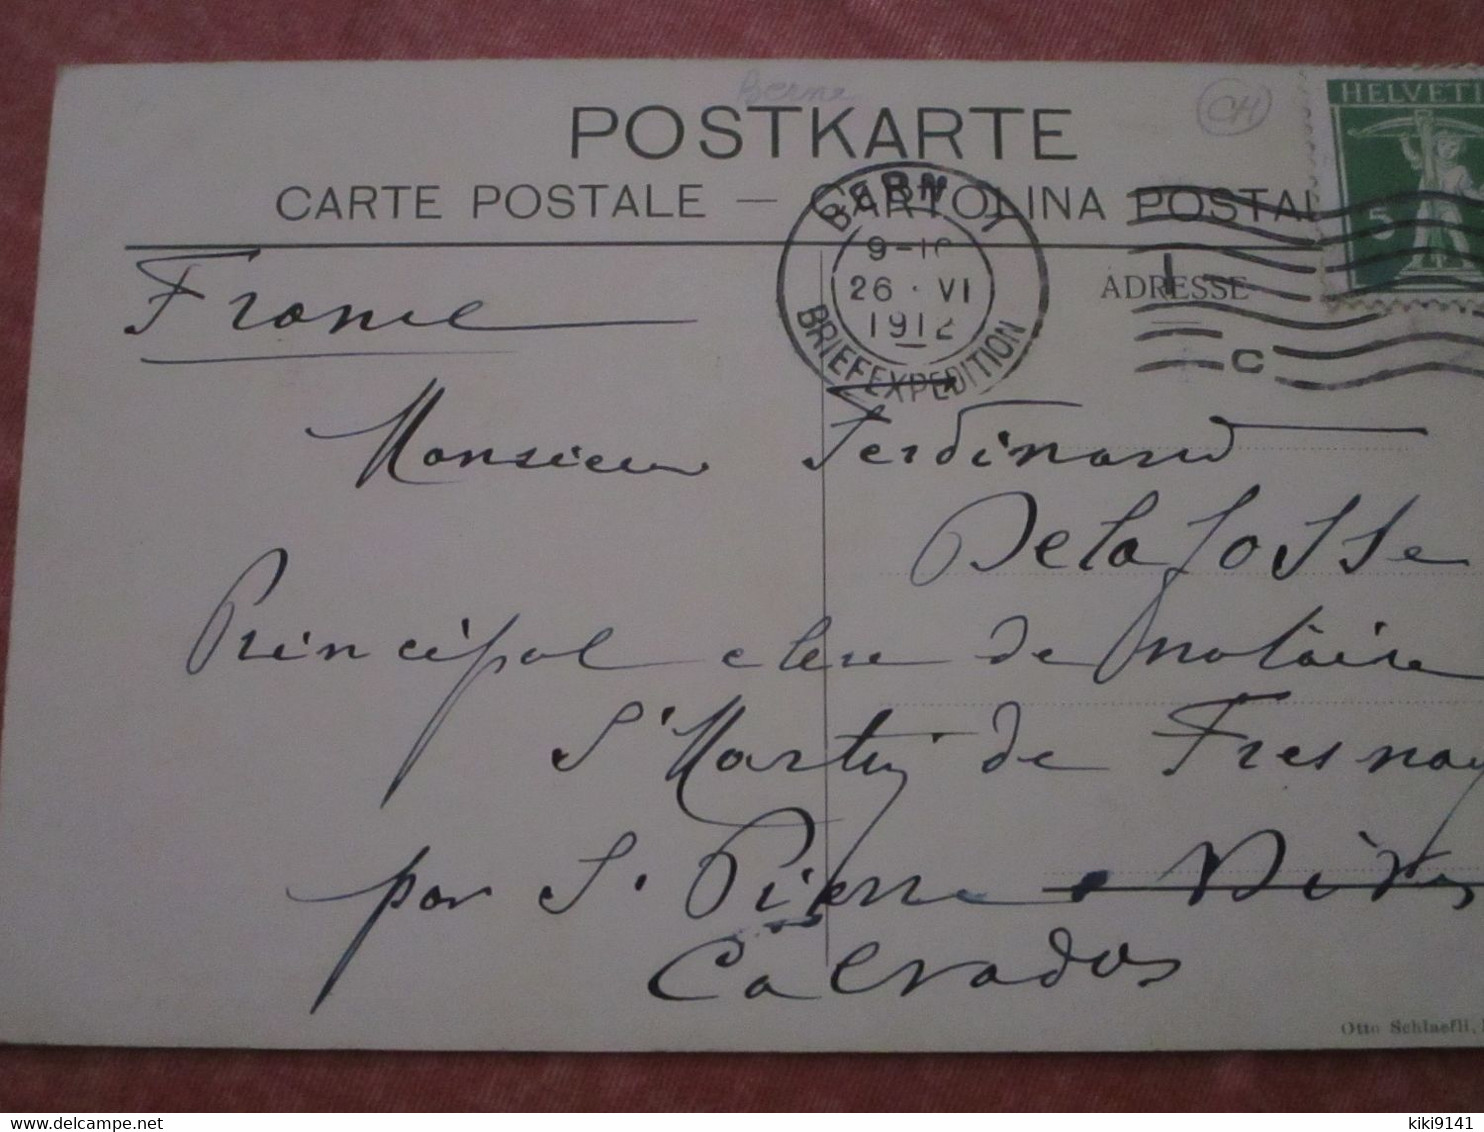 Berne
CH
POSTKARTE
CARTE POSTALE — CARTOLINA POSTAL
HELVETI
5
BERN 1
9-10
26 · VI
1912
BRIEFEXPEDITION
C
ADRESSE
France
Monsieur Ferdinand
Delafosse
Principal clerc de notaire
St Martin de Fresnay
par St. Pierre s Dives
Calvados
Otto Schlaefli,
delcampe.net
kiki9141